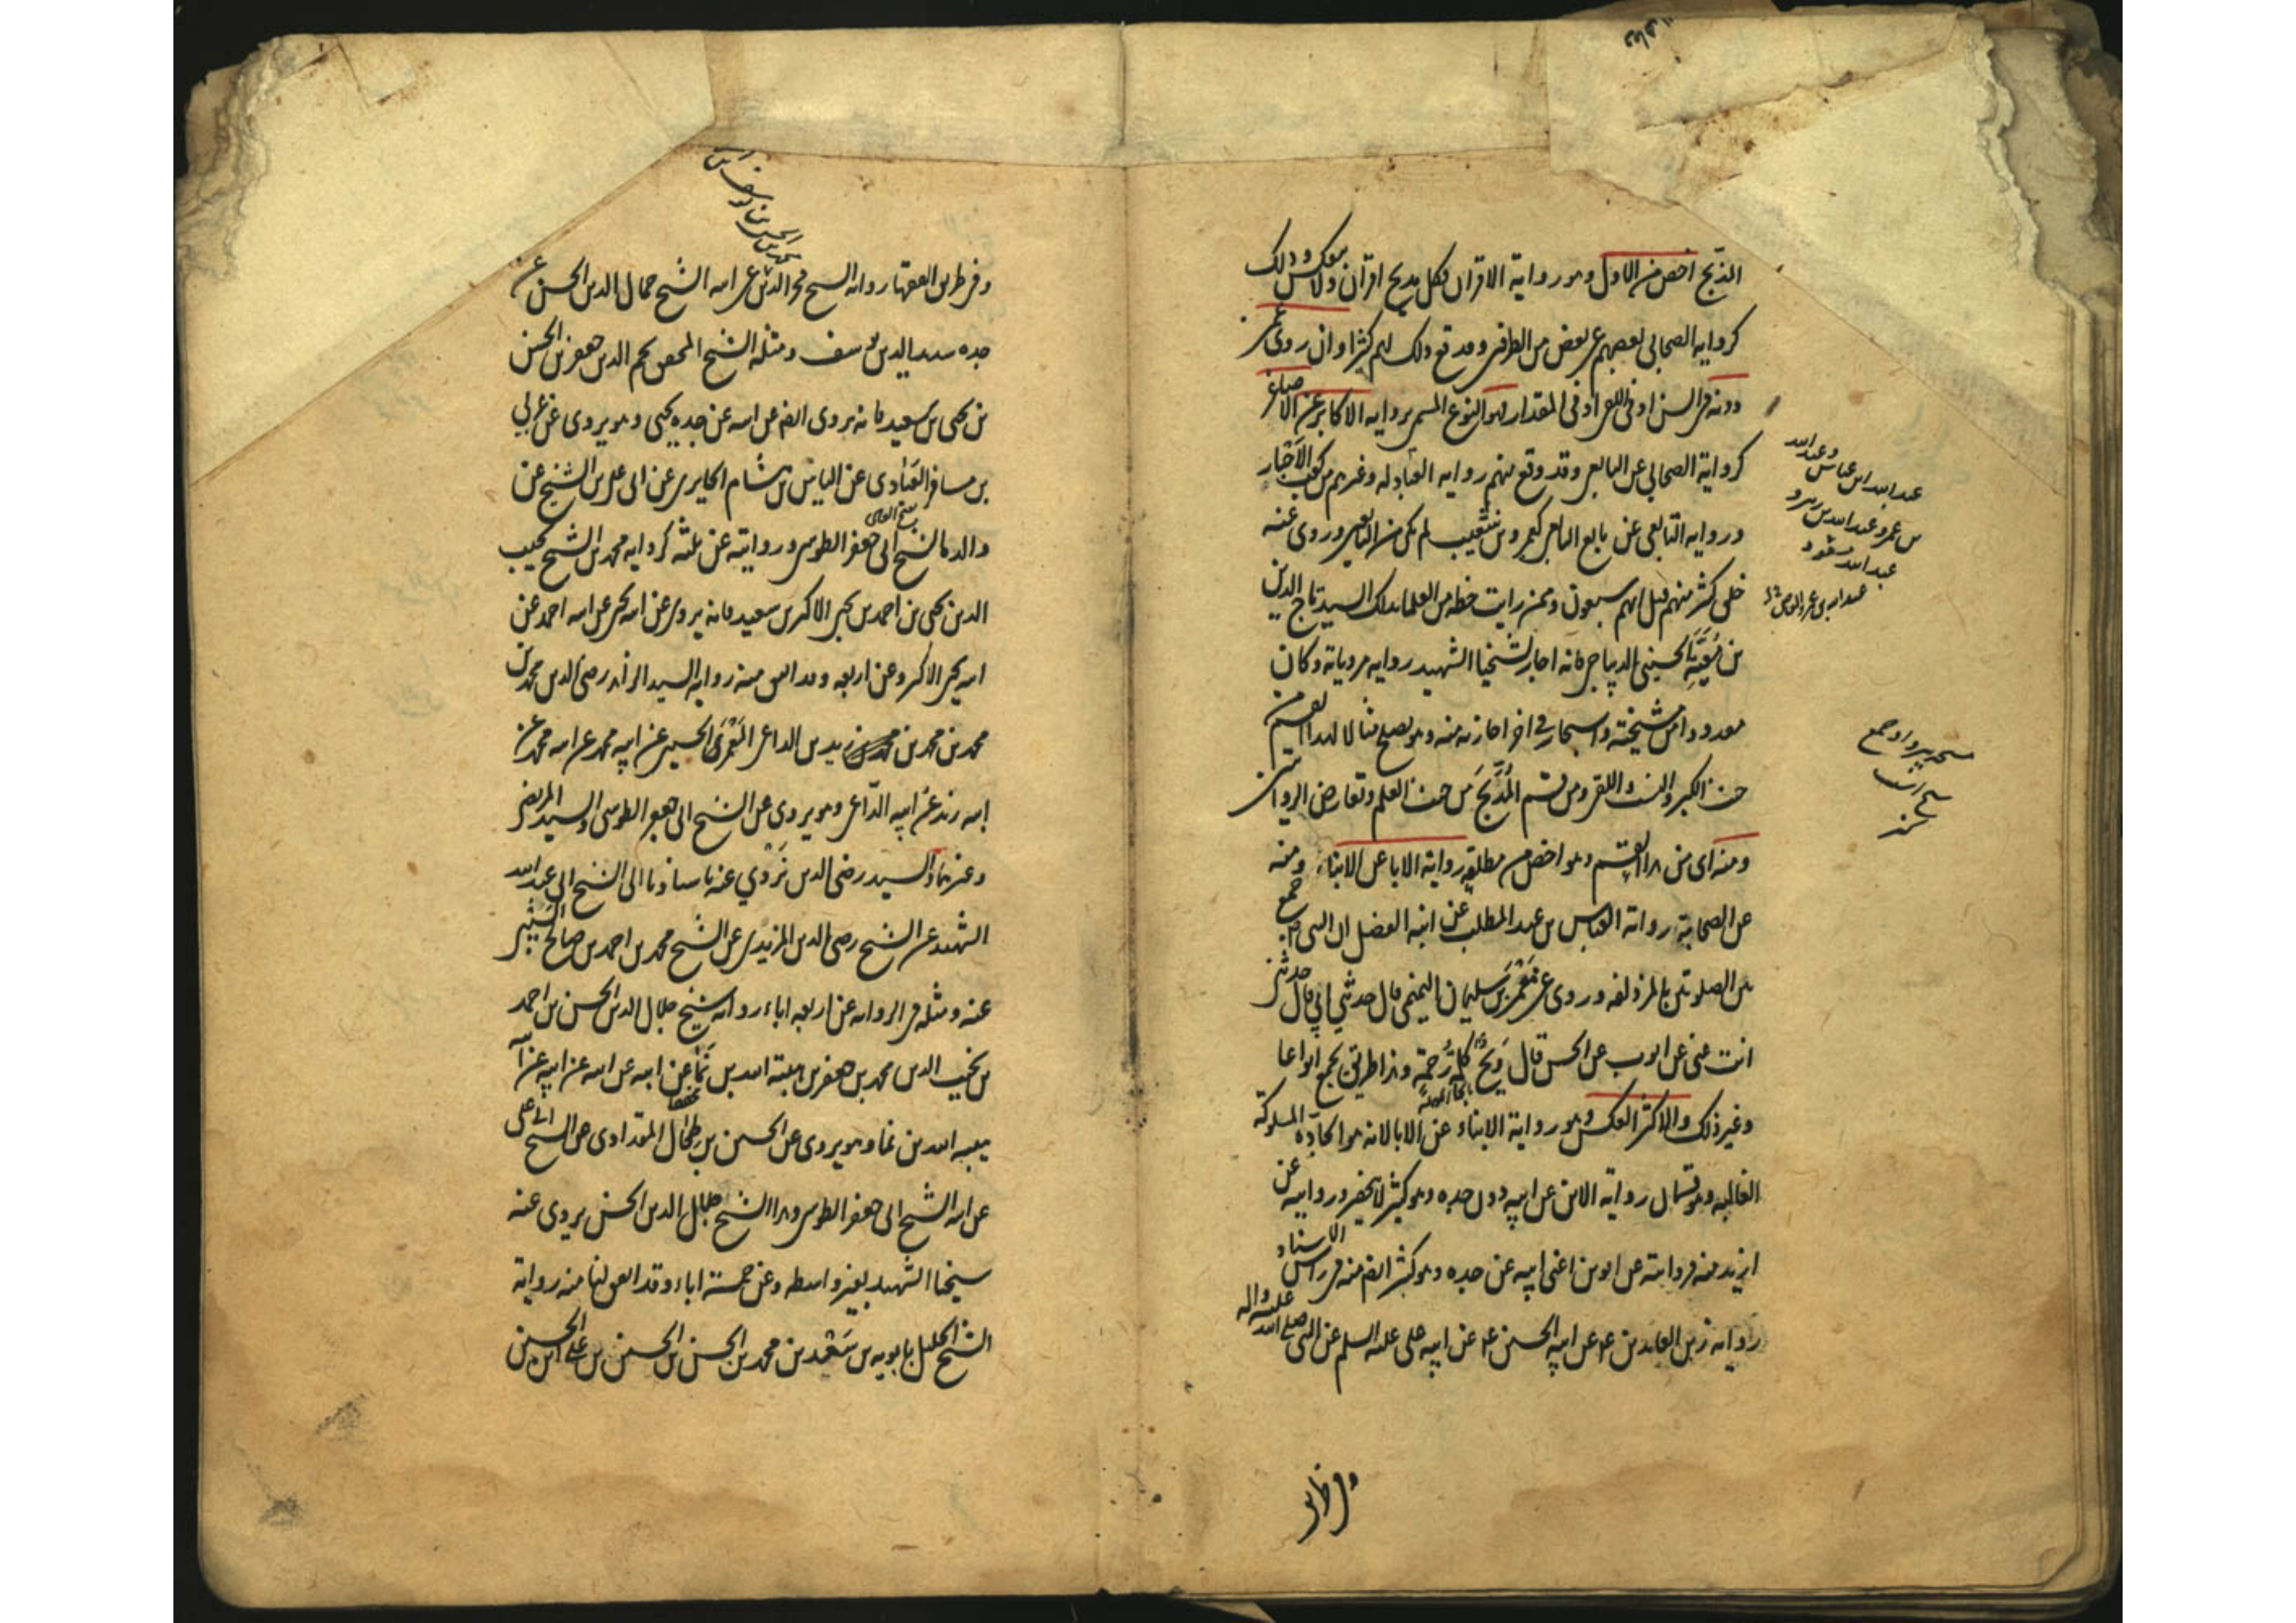 المدبج اخص من الاول وهو رواية الاقران فكل مدبج اقران ولا ينعكس وذلك
كرواية الصحابة بعضهم عن بعض من الطرفين وقد وقع ذلك لهم كثيرا وان روى عمن
دونه في السن او في اللقى او في المقدار فهو النوع المسمى برواية الاكابر عن الاصاغر
كرواية الصحابي عن التابعي وقد وقع منهم رواية العبادلة وغيرهم عن كعب الاحبار
ورواية التابعي عن تابع التابعي كعمرو بن شعيب لم يكن من التابعين وروى عنه
خلق كثير منهم قيل انهم سبعون وممن رايت خطه من العلماء بذلك السيد تاج الدين
بن مُعَيَّة الحسيني الديباجي فانه اجاز لشيخنا الشهيد رواية مروياته وكان
معدودا من مشيخته واستجاز في اخر اجازته منه وهو يصلح مثالا لهذا القسم من
حيث الكبر والنسب واللقى ومن قسم المُدَبَّج من حيث العلم وتعارض الروايتين
ومنه اى من هذا القسم وهو اخص من مطلقه رواية الاباء عن الابناء ومنه
عن الصحابة رواية العباس بن عبد المطلب عن ابنه الفضل ان النبى ص جمع
بين الصلوتين بالمزدلفة وروى عن مُعْتَمِر بن سليمان التيمي قال حدثني ابي قال حدثتني
انت عنى عن ايوب عن الحسن قال وَيْح كلمة رحمة وهذا طريق يجمع انواعا
بالحاء المهملة
وغير ذلك والاكثر العكس وهو رواية الابناء عن الاباء لانه هو الجادة المسلوكة
الغالبة وهو قسمان رواية الابن عن ابيه دون جده وهو كثير لا ينحصر وروايته عن
ازيد منه فروايته عن ابوين اعنى ابيه عن جده وهو كثير ايضا منه في راس الاسناد
رواية زين العابدين ع عن ابيه الحسين ع عن ابيه على عليه السلم عن النبى صلى الله عليه واله
عبد الله بن عباس وعبد الله
بن عمر وعبد الله بن زبير و
عبد الله مسعود
وفى طرق
وفى طريق الفقهاء رواية الشيخ فخر الدين عن ابيه الشيخ جمال الدين الحسن عن
جده سديد الدين يوسف ومثله الشيخ المحقق نجم الدين جعفر بن الحسن
بن يحيى بن سعيد فانه يروى ايضا عن ابيه عن جده يحيى وهو يروى عن عربى
بن مسافر العبادى عن الياس بن هشام الحايرى عن ابى على بن الشيخ عن
والده الشيخ ابى جعفر الطوسى وروايته عن ثلثة كرواية محمد بن الشيخ نجيب
الدين يحيى بن احمد بن يحيى الاكبر بن سعيد فانه يروى عن ابيه يحيى عن ابيه احمد عن
ابيه يحيى الاكبر وعن اربعة وقد اتفق منه رواية السيد الزاهد رضى الدين محمد بن
محمد بن محمد بن زيد بن الداعى المَعْمَرى الحسينى عن ابيه محمد عن ابيه محمد عن
ابيه زيد عن ابيه الداعى وهو يروى عن الشيخ ابى جعفر الطوسى والسيد المرتضى
وغيرهما والسيد رضى الدين نَرْوِي عنه باسنادنا الى الشيخ ابى عبد الله
الشهيد عن الشيخ رضى الدين المزيدى عن الشيخ محمد بن احمد بن صالح السيبى
عنه ومثله فى الرواية عن اربعة اباء رواية الشيخ جلال الدين الحسن بن احمد
بن نجيب الدين محمد بن جعفر بن هبة الله بن نَمَا عن ابيه عن ابيه عن ابيه عن ابيه
هبة الله بن نما وهو يروى عن الحسين بن طحال المقدادى عن الشيخ ابى على
عن ابيه الشيخ ابى جعفر الطوسى وهذا الشيخ جلال الدين الحسن يروى عنه
شيخنا الشهيد بغير واسطة وعن خمسة اباء وقد اتفق لنا منه رواية
الشيخ الجليل بابويه بن سَعْد بن محمد بن الحسن بن الحسين بن على بن الحسين